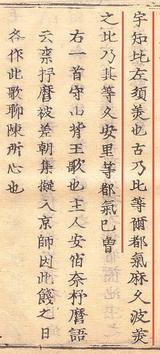 宇知比左須美也古乃比等爾都氣麻久波美
之比乃其等久安里等都氣己曾
右一首守山背王歌也主人安宿奈杼麿語
云奈杼麿被差朝集擬入京師因此餞之日
各作此歌聊陳所心也